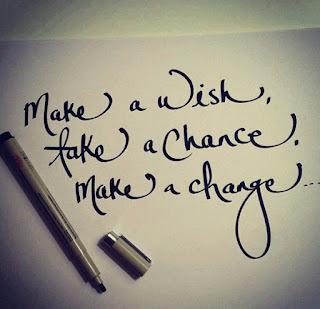 Make a Wish,
take a Chance,
Make a change...